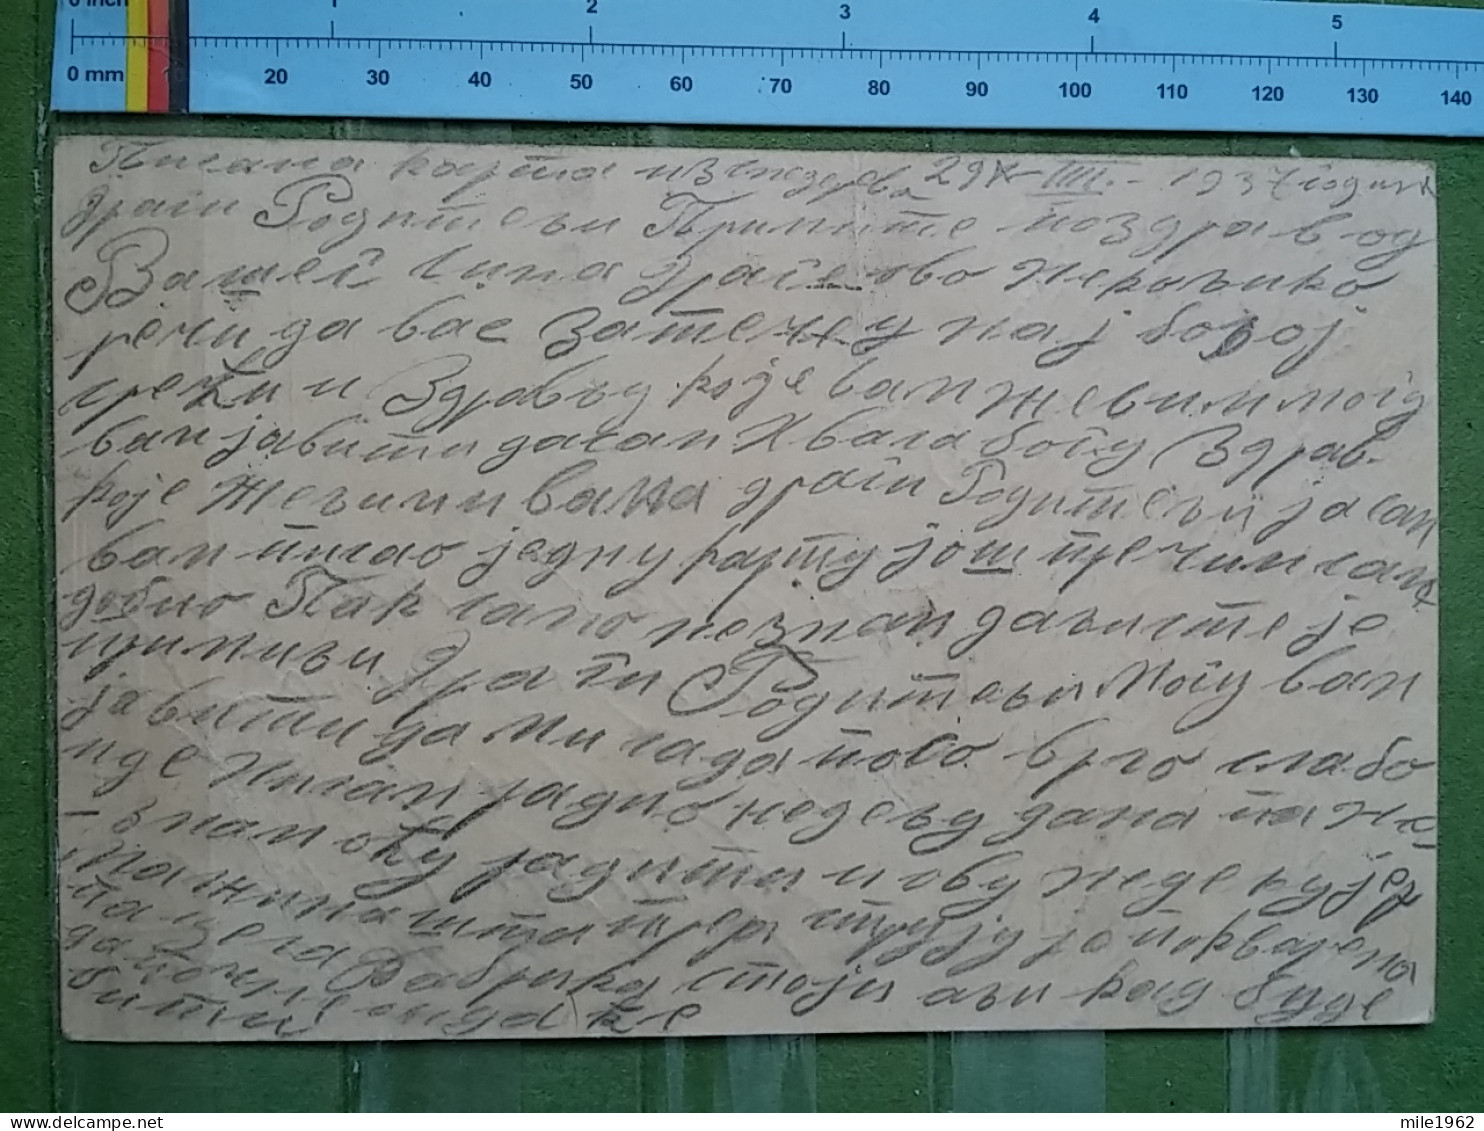 0 inch 1 2 3 4 5
0 mm 20 30 40 50 60 70 80 90 100 110 120 130 140
Писана карта из 29 III. - 1937 године
Драги Родитељи Примите поздрав од
Вашег Сина
речи да вас затечу нај бољој
срећи и Здрављу које вам жељим могу
вам јавити да сам Хвала богу Здрав.
које жељим и вама драги Родитељи ја сам
вам писао једну карту још пре
добио Пак само незнам да ли сте је
примили Драги Родитељи Могу вам
јавити да ми сада посо врло слабо
иде Нисам радио недељу дана па не
знам оћу радити и ову недељу јер
машина шта тера струју је покварена
па цела Фабрика стоји али кад буде
да почне онда ће
бити
mile1962